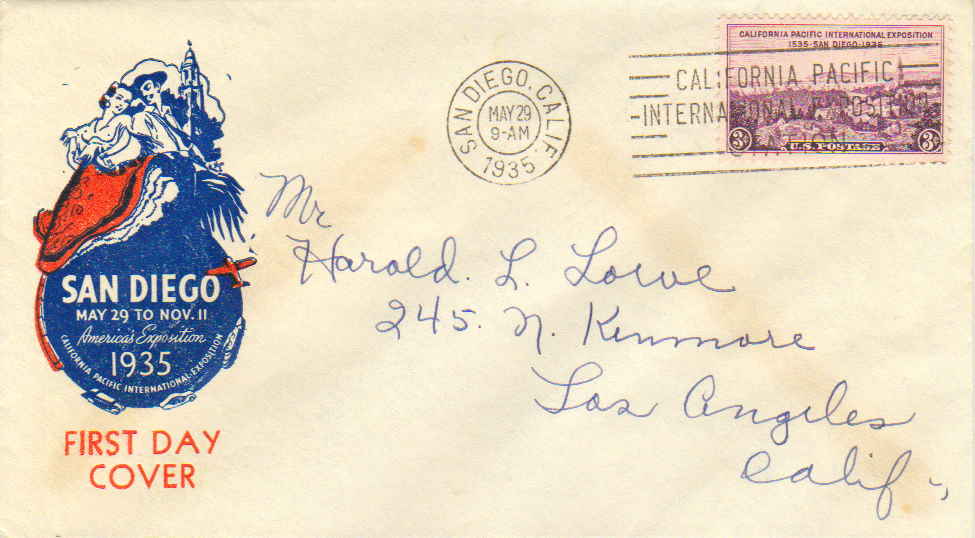 CALIFORNIA PACIFIC INTERNATIONAL EXPOSITION
1535·SAN DIEGO·1935
3¢ 3¢
U.S. POSTAGE
SAN DIEGO, CALIF.
MAY 29
9-AM
1935
CALIFORNIA PACIFIC
INTERNATIONAL EXPOSITION
STATION
Mr
Harold. L. Lowe
245. N. Kenmore
Los Angeles
Calif.,
SAN DIEGO
MAY 29 TO NOV. 11
America's Exposition
1935
CALIFORNIA PACIFIC INTERNATIONAL EXPOSITION
FIRST DAY
COVER